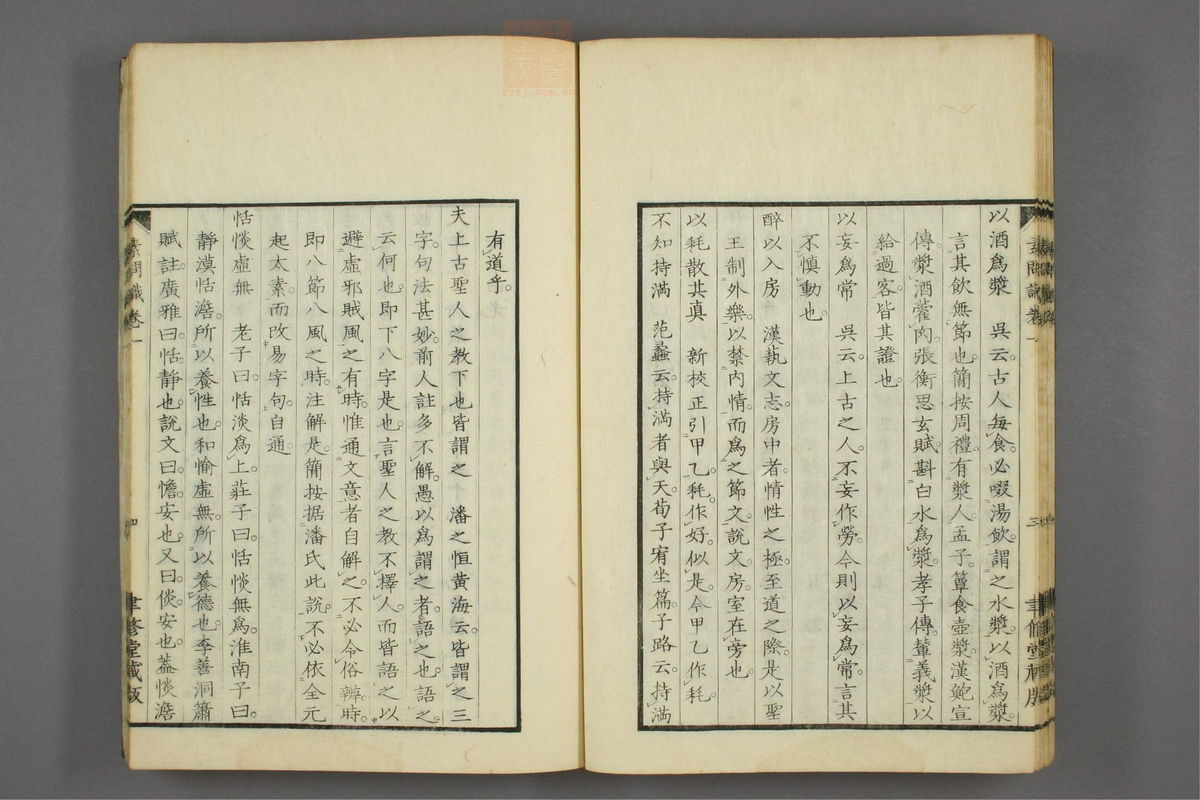 以酒爲漿 吳云。古人每食。必啜湯飲。謂之水漿。以酒爲漿。
言其飲無節也。簡按周禮。有漿人。孟子。簞食壺漿。漢鮑宣
傳。漿酒藿肉。張衡思玄賦。斟白水爲漿。孝子傳。輦義漿以
給過客。皆其證也。
以妄爲常 吳云。上古之人。不妄作勞。今則以妄爲常。言其
不慎動也。
醉以入房 漢執文志。房中者。情性之極。至道之際。是以聖
王制外樂。以禁內情。而爲之節文。說文。房。室在旁也。
以耗散其真 新校正引甲乙。耗。作好。似是。今甲乙作耗。
不知持滿 范蠡云。持滿者與天。荀子宥坐篇。子路云。持滿
有道乎。
夫上古聖人之教下也皆謂之 潘之恒黃海云。皆謂之三
字。句法甚妙。前人註多不解。愚以爲謂之者。語之也。語之
云何也。即下八字是也。言聖人之教不擇人。而皆語之以
避虛邪賊風之有時。惟通文意者自解之。不必令俗辨。時。
即八節八風之時。注解是。簡按据潘氏此說。不必依全元
起太素而改易字句。自通。
恬惔虛無 老子曰。恬淡爲上。莊子曰。恬惔無爲。淮南子曰。
靜漠恬澹。所以養性也。和愉虛無。所以養德也。李善洞簫
賦註。廣雅曰。恬。靜也。說文曰。憺。安也。又曰。倓。安也。葢惔澹
素問識卷一
三
聿修堂藏版
素問識卷一
四
聿修堂藏版